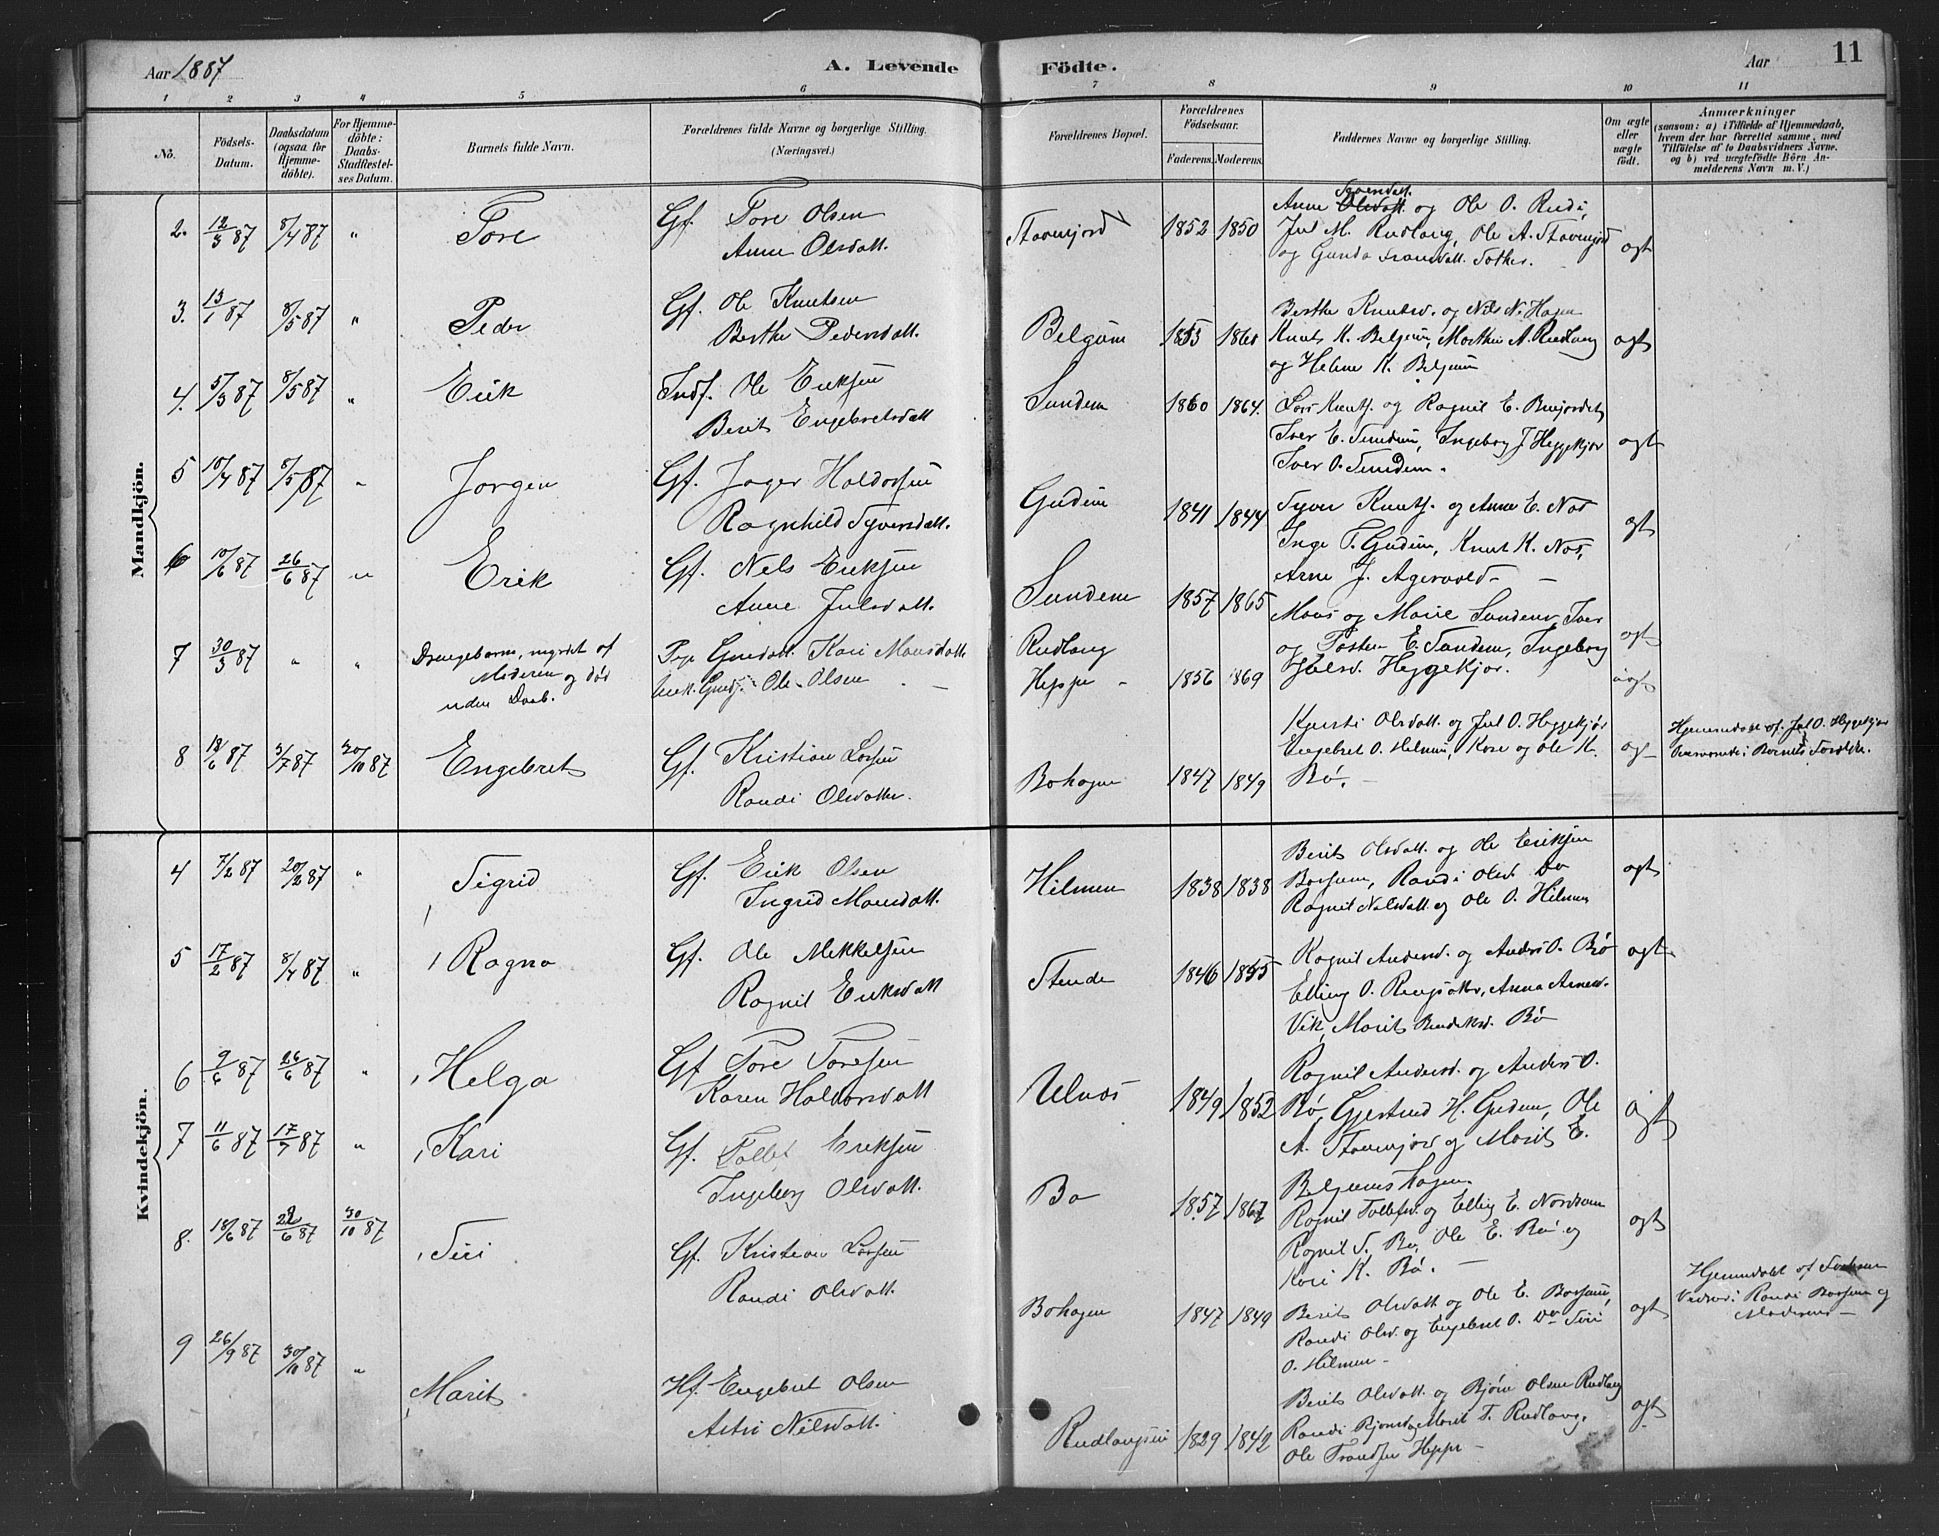 Aar 1887
A. Levende Födte.
Aar
11
1 2 3 4 5 6 7 8 9 10 11
No.
Födsels-Datum.
Daabsdatum (ogsaa for Hjemme-döbte).
For Hjemme-döbte: Daabs-Stadfæstel-ses Datum.
Barnets fulde Navn.
Forældrenes fulde Navne og borgerlige Stilling. (Næringsvei.)
Forældrenes Bopæl.
Forældrenes Födselsaar.
Faderens. Moderens.
Faddernes Navne og borgerlige Stilling.
Om ægte eller uægte födt.
Anmærkninger
(saasom: a) i Tilfælde af Hjemmedaab, hvem der har forrettet samme, med Tilföielse af to Daabsvidners Navne, og b) ved uægtefödte Börn An-melderens Navn m. V.)
Mandkjön.
2. 12/3 87 8/4 87 " Tore Gf. Tore Olsen
Anne Olsdatt.
Stavenjord 1852 1850
Anne Olsdatt. og Ole O. Rudi,
Jul M. Rudlang, Ole A. Stavenjord
og Gunda Trondsdatt. ægt
3. 13/1 87 8/5 87 " Peder Gf. Ole Knutsen
Berthe Pedersdatt.
Belgum 1853 1860
Berthe Knutsd. og Nils N. Hagen
Knut K. Belgum, Marthea A. Rudlang
og Helene K. Belgum ægt
4. 5/3 87 8/5 87 " Erik Indf. Ole Eriksen
Berit Engebretsdatt
Sundem 1860 1864.
Lars Knuts. og Ragnil E.
Iver E. Sundem, Ingeborg J Heggekjør
Iver O. Sundem. ægt
5 10/4 87 8/5 87 " Jørgen Gf. Jøger Haldorsen
Ragnhild Syversdatt.
Gudem 1841 1844
Syver Knuts. og Anne E. Nos
Inge T. Gudem, Knut K. Nos,
Arne J. Agervold – ægt
6 10/6 87 26/6 87 " Erik Gf. Nels Eriksen
Anne Julsdatt.
Sundem 1857 1865
Mons og Marie Sundem, Iver
og Torsten E. Sundem, Ingeborg
Julsd. Heggekjør. ægt
7 30/3 87 " " Drengebarn, myrdet af
Moderen og død
uden Daab.
Pige Gudatt. Kari Monsdatt
Ole Olsen
Rudlang
Heppe 1856 1869 uægt
8 18/6 87 3/7 87 30/10 87 Engebret Gf. Kristian Larsen
Randi Olsdatter.
Bøhagen 1847 1849
Kjersti Olsdatt. og Jul O. Heggekjør
Engebret O. Hilmen, Kari og Ole K.
Bø. – ægt
Hjemmedøbt af Jul O. Heggekjør
Overværende: Barnets Forældre.
Kvindekjön.
4 7/2 87 20/2 87 " Sigrid Gf. Erik Olsen
Ingrid Monsdatt.
Hilmen 1838 1838
Berit Olsdatt. og Ole Eriksen
Børsum, Randi Olsd. Do
Ragnil Nilsdatt. og Ole O. Hilmen ægt
5 17/2 87 8/4 87 " Ragna Gf. Ole Mikkelsen
Ragnil Eriksdatt
Stende 1846 1855
Ragnil Andersd. og Anders O. Bø
Elling O. Ringsaker, Anna Arnesd.
Vik, Marit Bendiksd. Bø ægt
6 9/6 87 26/6 87 " Helga Gf. Tore Toresen
Karen Haldorsdatt
Ulnæs 1849 1852
Ragnil Andersd. og Anders O.
Bø, Gjertrud H. Gudem, Ole
A. Stavenjord og Marit E.
Belgumshagen. ægt
7 11/6 87 17/7 87 " Kari Gf. Tollef Eriksen
Ingeborg Olsdatt.
Bø 1857 1867
Ragnil Tollefsd. og Elling E. Nordrum
Ragnil T. Bø, Ole E. Bø og
Kari K. Bø. – ægt
8. 18/6 87 26/6 87 30/10 87 Siri Gf. Kristian Larsen
Randi Olsdatt.
Bøhagen 1847 1849
Berit Olsdatt og Ole E. Børsum,
Randi Olsd. og Engebret O. Do Siri
O. Hilmen – ægt
Hjemmedøbt af
Vidner: Randi Børsum og
Moderen –
9 26/9 87 30/10 87 " Marit Hf. Engebret Olsen
Astri Nilsdatt.
Rudlangseie 1829 1842
Berit Olsdatt. og Bjørn Olsen Rudlang
Randi Bjørnsd. og Marit T. Rudlang.
Ole Trondsen Heppe – ægt